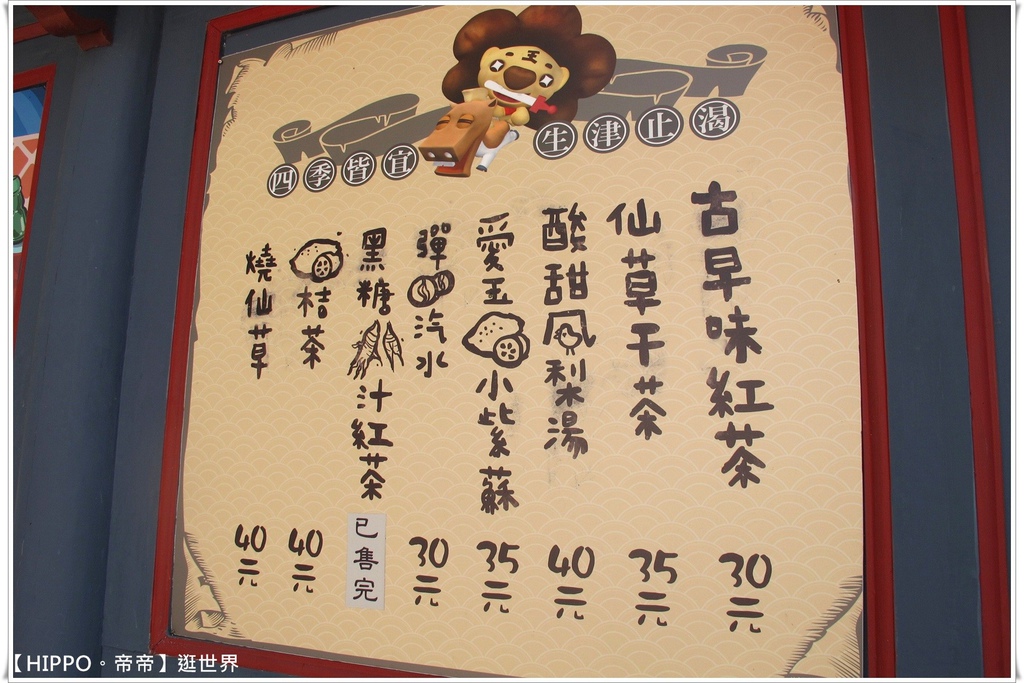 四季皆宜
生津止渴
王
古早味紅茶 30元
仙草干茶 35元
酸甜鳳梨湯 40元
愛玉小紫蘇 35元
彈汽水 30元
黑糖汁紅茶 已售完
桔茶 40元
燒仙草 40元
【HIPPO。帝帝】逛世界